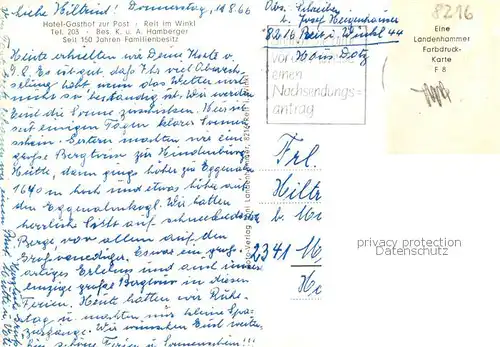 Liebe Hiltrud! Donnerstag, 11.8.66
Hotel-Gasthof zur Post · Reit im Winkl
Tel. 203 · Bes. K. u. A. Hamberger
Seit 150 Jahren Familienbesitz
Heute erhielten wir Deine Karte v.
Es ist gut, daß Ihr viel Abwech-
selung habt, wenn das Wetter
nicht so beständig ist. Wir werden
Euch die Sonne
seit einigen Tagen klarer Sonnen-
schein. Gestern machten wir eine
große Bergtour zur Hindenburg-
Hütte, dann gings höher zu Eggenalm
1640 m hoch und etwas höher auf
den Eggenalmkogl. Wir hatten
herrliche Sicht auf schneebedeckte
Berge, vor allem auf den
Großvenediger. Es war ein groß-
artiges Erlebnis und auch unsere
einzige große Bergtour in diesen
Ferien. Heute hatten wir Ruhe-
tag u. machten nur kleine Spa-
ziergänge. Wir wünschen Euch weiter
schöne Ferien u. Sonnenschein!!!
Abs. Schreiber
b. Josef
8216 Reit i. Winkl 44
Haus
vor
einen
Nachsendungs-
antrag
Frl.
Hiltr
b. Mi
2341
8216
Eine
Landenhammer
Farbdruck-
Karte
F 8
Foto-Verlag
Landenhammer, 8216 Reit i. Winkl
privacy protection
Datenschutz